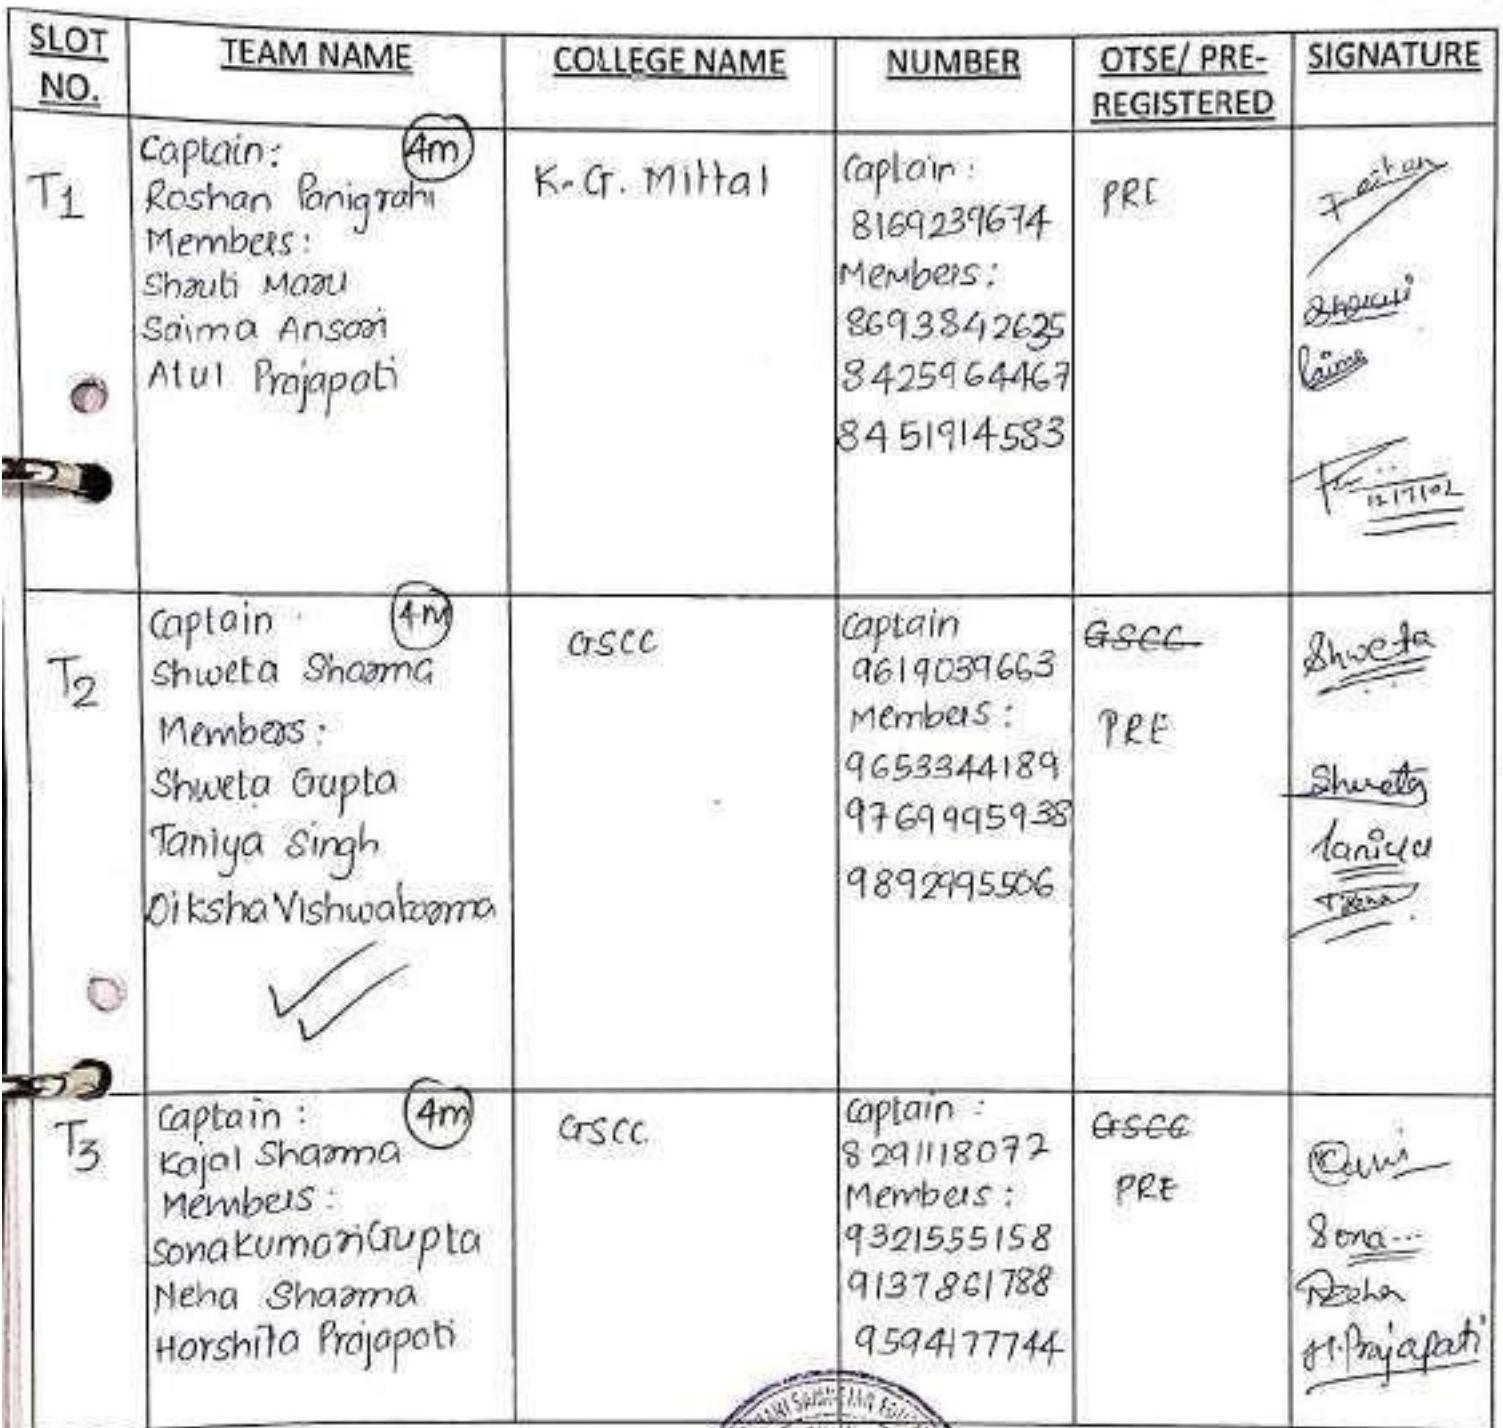 SLOT NO.
TEAM NAME
COLLEGE NAME
NUMBER
OTSE/ PRE-REGISTERED
SIGNATURE
T1
Captain: 4m
Roshan Panigrahi
Members:
Shruti Maru
Saima Ansari
Atul Prajapati
K.G. Mittal
Captain:
8169239674
Members:
8693842635
8425964467
8451914583
PRE
Shruti
Saima
12/7/02
T2
Captain 4m
Shweta Sharma
Members:
Shweta Gupta
Taniya Singh
Diksha Vishwakarma
GSCC
Captain
9619039663
Members:
9653344189
9769995938
9892995506
GSCC
PRE
Shweta
Shweta
Taniya
T3
Captain: 4m
Kajal Sharma
Members:
Sonakumari Gupta
Neha Sharma
Harshita Prajapati
GSCC
Captain:
8291118072
Members:
9321555158
9137861788
9594177744
GSCC
PRE
Sona...
Neha
H.Prajapati